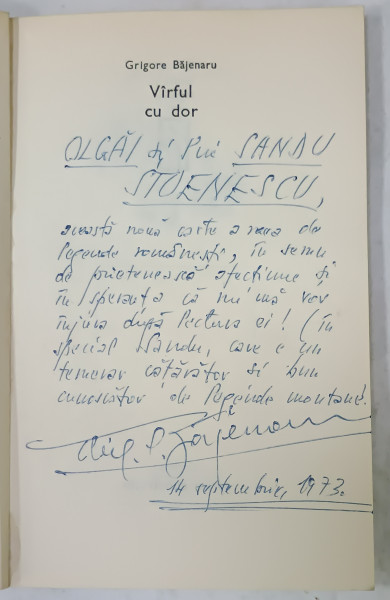 Grigore Băjenaru
Vîrful
cu dor
OLGĂI și lui SANDU
STOENESCU,
această nouă carte a mea de
legende românești, în semn
de prietenească afecțiune și
în speranța că nu mă vor
înjura după lectura ei! (În
special Sandu, care e un
temerar cățărător și bun
cunoscător de legende montane!
Grig. Băjenaru
14 septembrie, 1973.